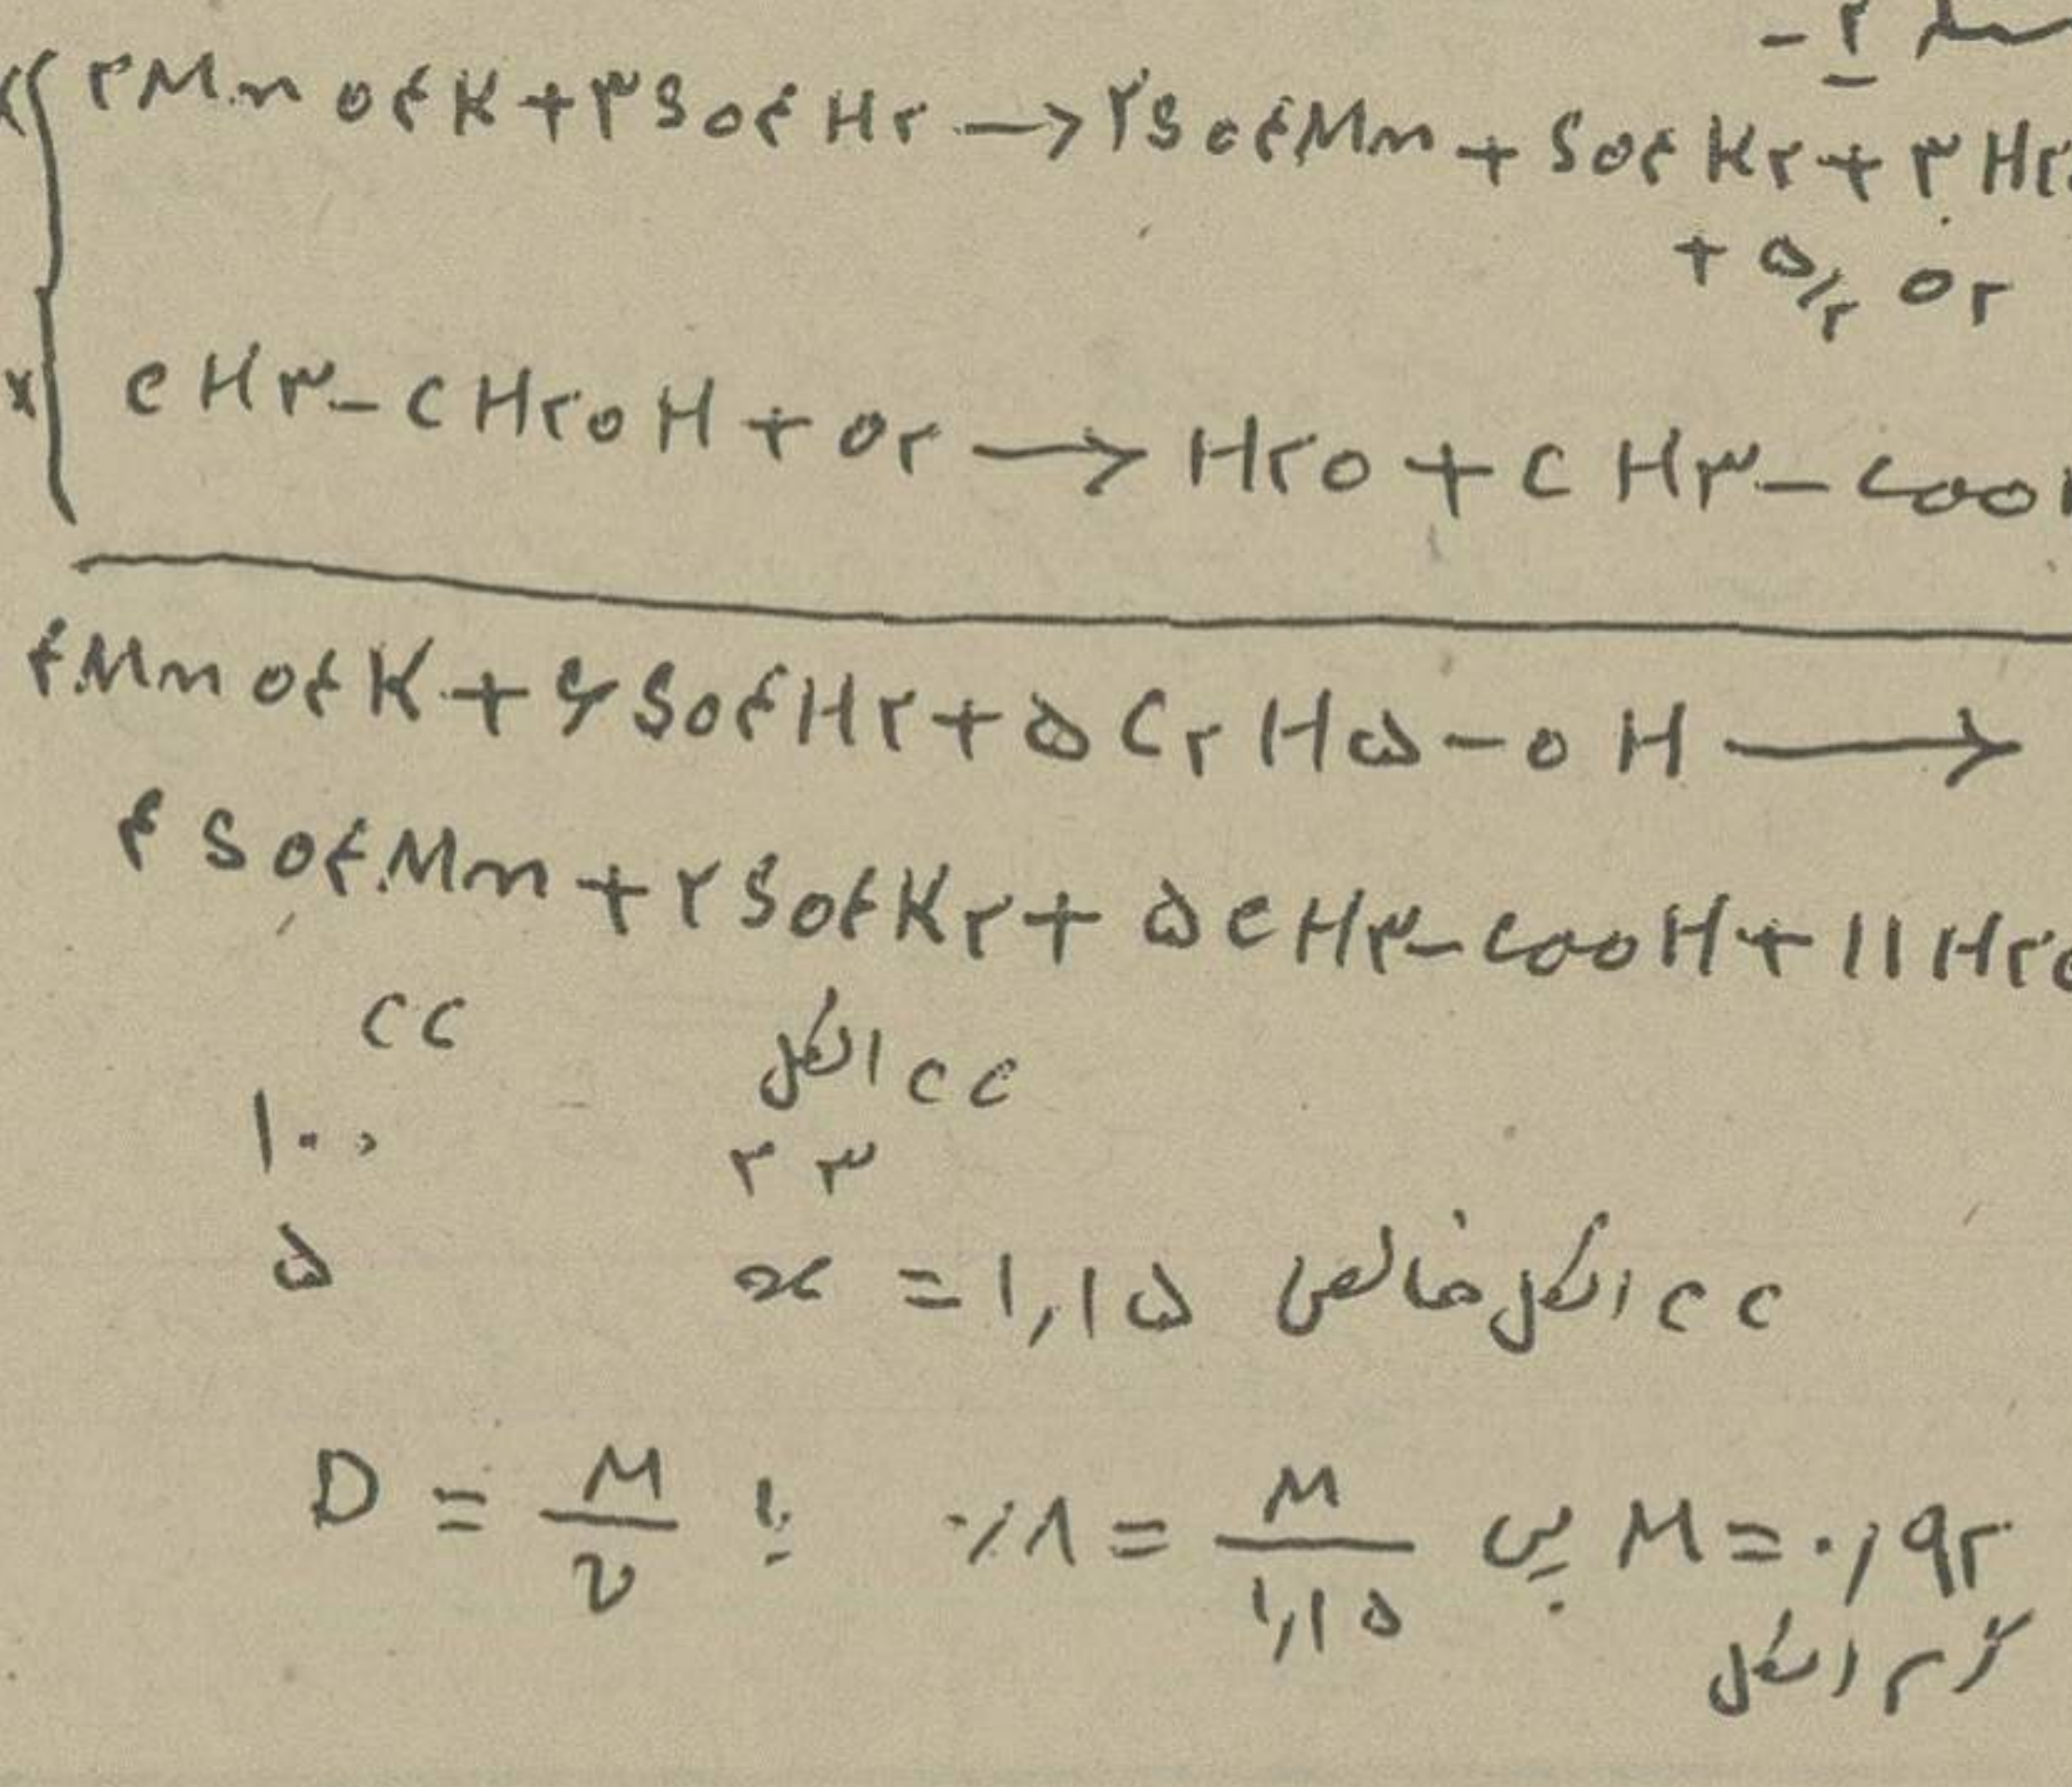 مسئله ۲-
۲MnO۴K + ۳SO۴H۲ → ۲SO۴Mn + SO۴K۲ + ۳H۲
+ ۵/۲ O۲
CH۳-CH۲OH + O۲ → H۲O + CH۳-COO
۴MnO۴K + ۶SO۴H۲ + ۵C۲H۵-OH →
۴SO۴Mn + ۲SO۴K۲ + ۵CH۳-COOH + ۱۱H۲O
cc الکل cc
۱۰۰ ۲۳
۵ x = ۱,۱۵ cc الکل خالص
D = M/v یا ۰/۸ = M/۱,۱۵ پس M = ۰,۹۲
گرم الکل